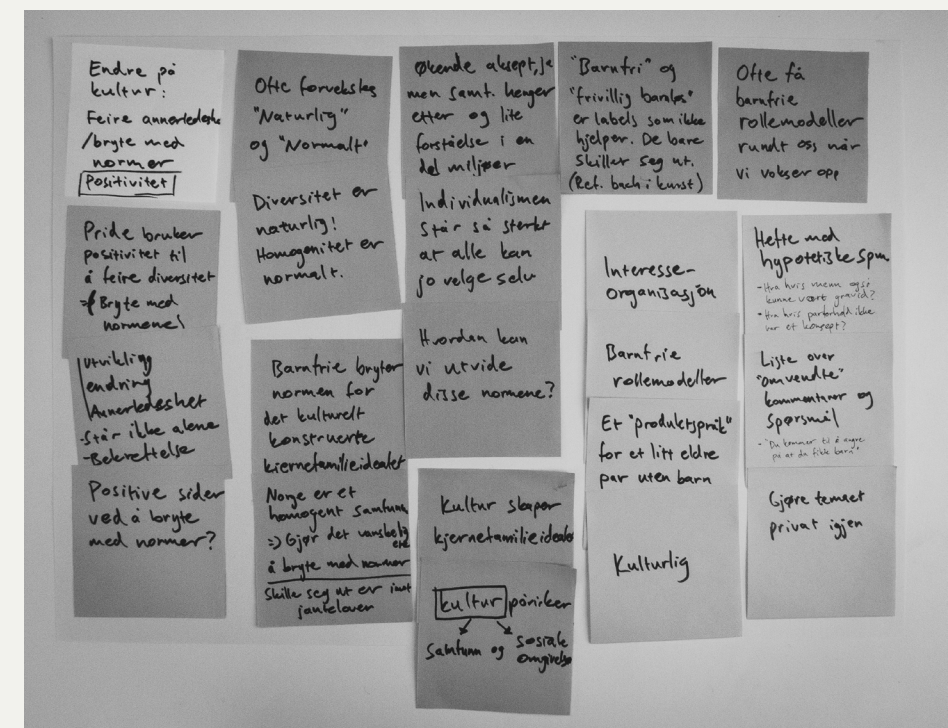 Endre på
kultur:
Feire annerledeshe
/bryte med
normer
Positivitet
Pride bruker
positivitet til
å feire diversitet
Bryte med
normene!
Utvikling
endring
Annerledeshet
-Står ikke alene
-Bekreftelse
Positive sider
ved å bryte
med normer?
Ofte forveksles
"Naturlig"
og "Normalt"
Diversitet er
naturlig!
Homogenitet er
normalt.
Barnfrie bryter
normen for
det kulturelt
konstruerte
kjernefamilieidealet
Norge er et
homogent samfunn
=) Gjør det vanskelig
å bryte med normer
Skille seg ut er imot
janteloven
Økende aksept, ja
men samt. henger
etter og lite
forståelse i en
del miljøer
Individualismen
står så sterkt
at alle kan
jo velge selv
Hvordan kan
vi utvide
disse normene?
Kultur skaper
kjernefamilieidealet
kultur påvirker
Samfunn og
sosiale
omgivelse
"Barnfri" og
"frivillig barnløs"
er labels som ikke
hjelper. De bare
skiller seg ut.
(Ref. bach i kunst)
Interesse-
organisasjon
Barnfrie
rollemodeller
Et "produktspråk"
for et litt eldre
par uten barn
Kulturlig
Ofte få
barnfrie
rollemodeller
rundt oss når
vi vokser opp
Hefte med
hypotetiske spm
-Hva hvis menn også
kunne vært gravid?
-Hva hvis parforhold ikke
var et konsept?
Liste over
"omvendte"
kommentarer og
spørsmål
-"Du kommer til å angre
på at du fikk barn"
Gjøre temaet
privat igjen